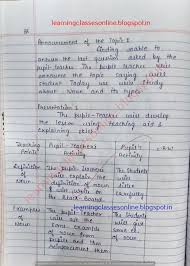 learningclassesonline.blogspot.in
Announcement of the Topic :
Finding unable to
answer the last question asked by the
pupil Teacher. The pupil teacher will
announce the topic saying "Well
student Today we will study
about Noun and its types.
Presentation :
The pupil-teacher will develop
the lesson using teaching aid &
explaining skill.
Teaching Points
Pupil-Teacher's Activity
Pupil's Activity
C.B.W
Definition of Noun
The pupil teacher
will explain the
definition of noun
& will write on
the Black-Board.
The students
will
listen
carefully
Examples of Noun
The pupil teacher
will ask the
some examples
of noun from
pupils and then
reinforcement them
The students
will give
some
of noun
learningclassesonline.blogspot.in